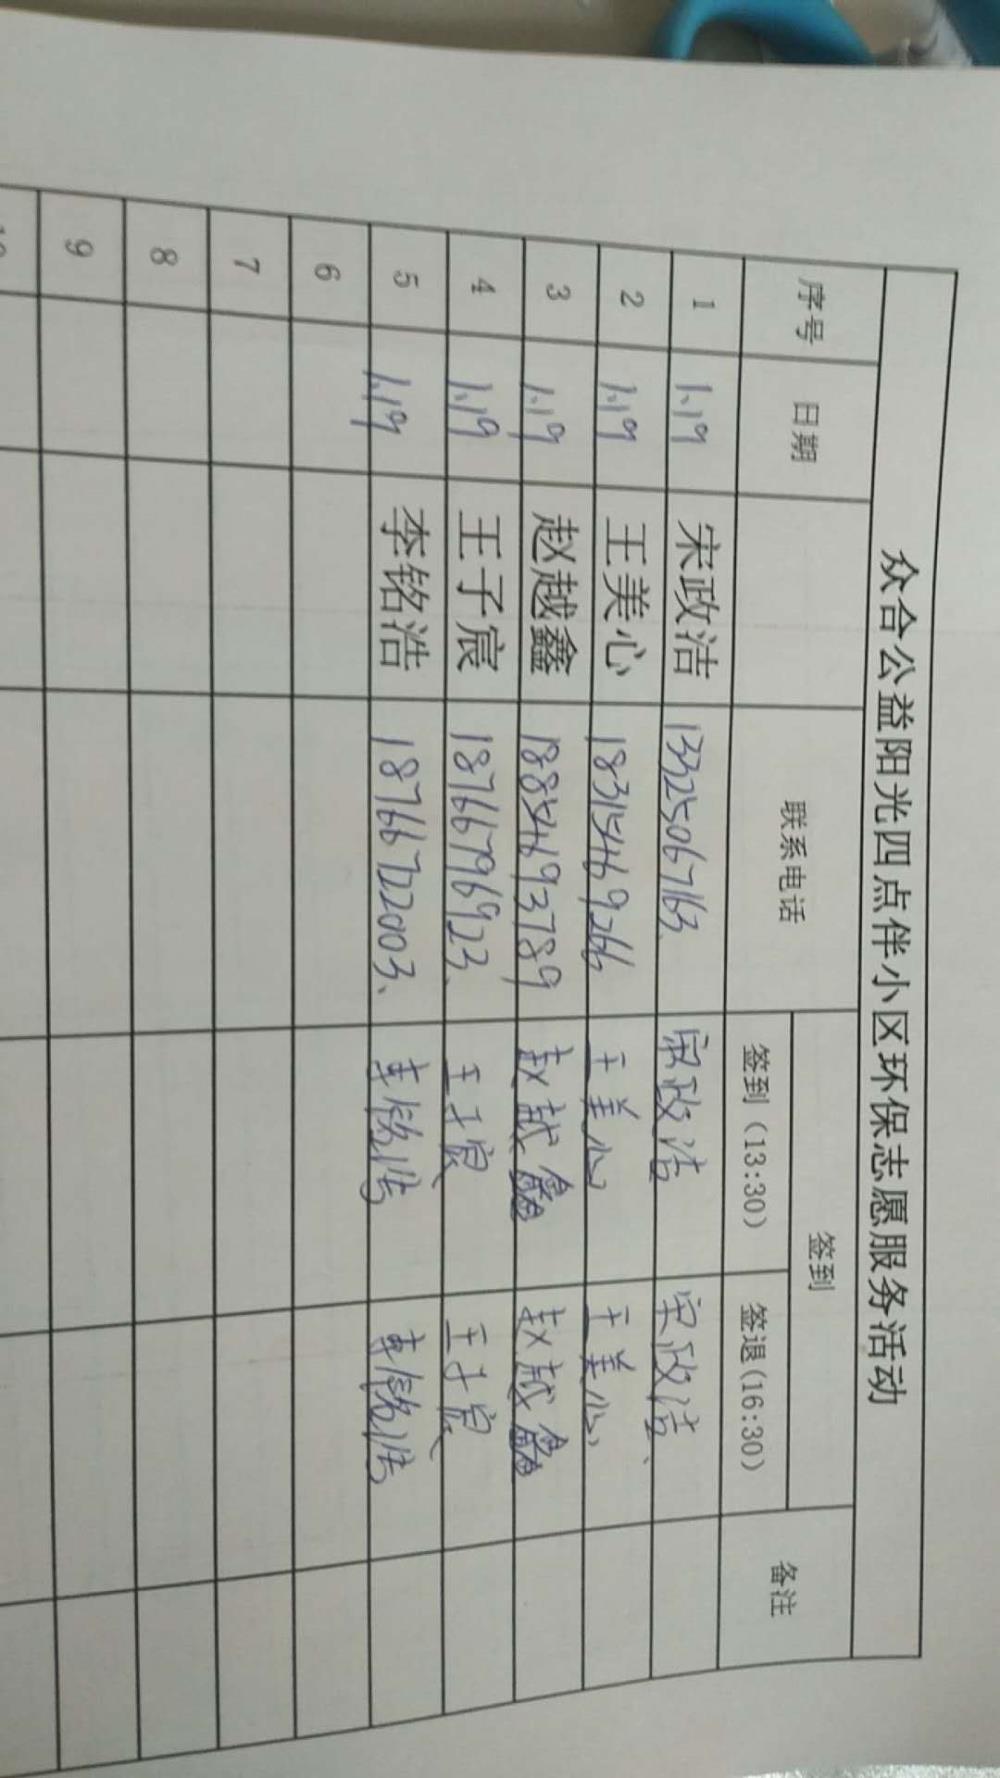 众合公益阳光四点伴小区环保志愿服务活动
序号 日期 联系电话 签到 备注
签到（13:30） 签退(16:30)
1 1.19 宋政洁 13325067163. 宋政洁 宋政洁、
2 1.19 王美心 18315469266 王美心 王美心、
3 1.19 赵越鑫 18854693789 赵越鑫 赵越鑫
4 1.19 王子宸 18766796923. 王子宸 王子宸
5 1.19 李铭浩 18766722003、 李铭浩 李铭浩
6
7
8
9
10